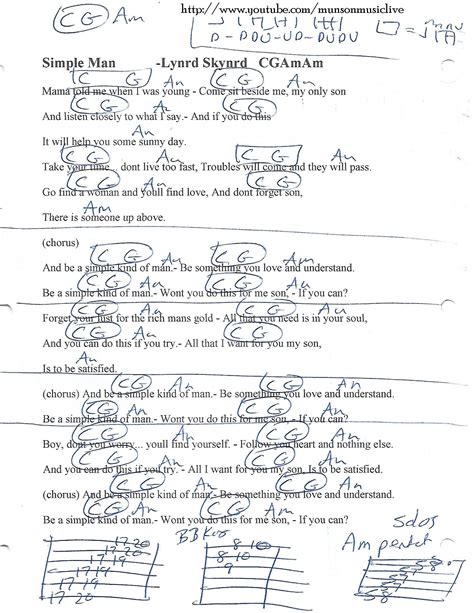 http://www.youtube.com/munsonmusiclive
C G Am
D - DDU - UD - DUDU
Simple Man -Lynrd Skynrd CGAmAm
C G Am Am
Mama told me when I was young - Come sit beside me, my only son
C G Am C G
And listen closely to what I say.- And if you do this
Am
It will help you some sunny day.
C G Am C G Am
Take your time... dont live too fast, Troubles will come and they will pass.
C G Am C G
Go find a woman and youll find love, And dont forget son,
Am
There is someone up above.
(chorus)
C G Am C G Am
And be a simple kind of man.- Be something you love and understand.
C G Am C G Am
Be a simple kind of man.- Wont you do this for me son, - If you can?
C G Am C G
Forget your lust for the rich mans gold - All that you need is in your soul,
C G Am C G
And you can do this if you try.- All I want for you my son,
Am
Is to be satisfied.
C G Am C G Am
(chorus) And be a simple kind of man.- Be something you love and understand.
C G Am C G Am
Be a simple kind of man.- Wont you do this for me son, - If you can?
C G Am C G Am
Boy, dont you worry... youll find yourself. - Follow you heart and nothing else.
C G Am C G Am
And you can do this if you try.- All I want for you my son, Is to be satisfied.
C G Am C G Am
(chorus) And be a simple kind of man.- Be something you love and understand.
C G Am C G Am
Be a simple kind of man.- Wont you do this for me son, - If you can?
17-20
17-20
17-19
17-19
17-19
17-20
8-10
8-10
9